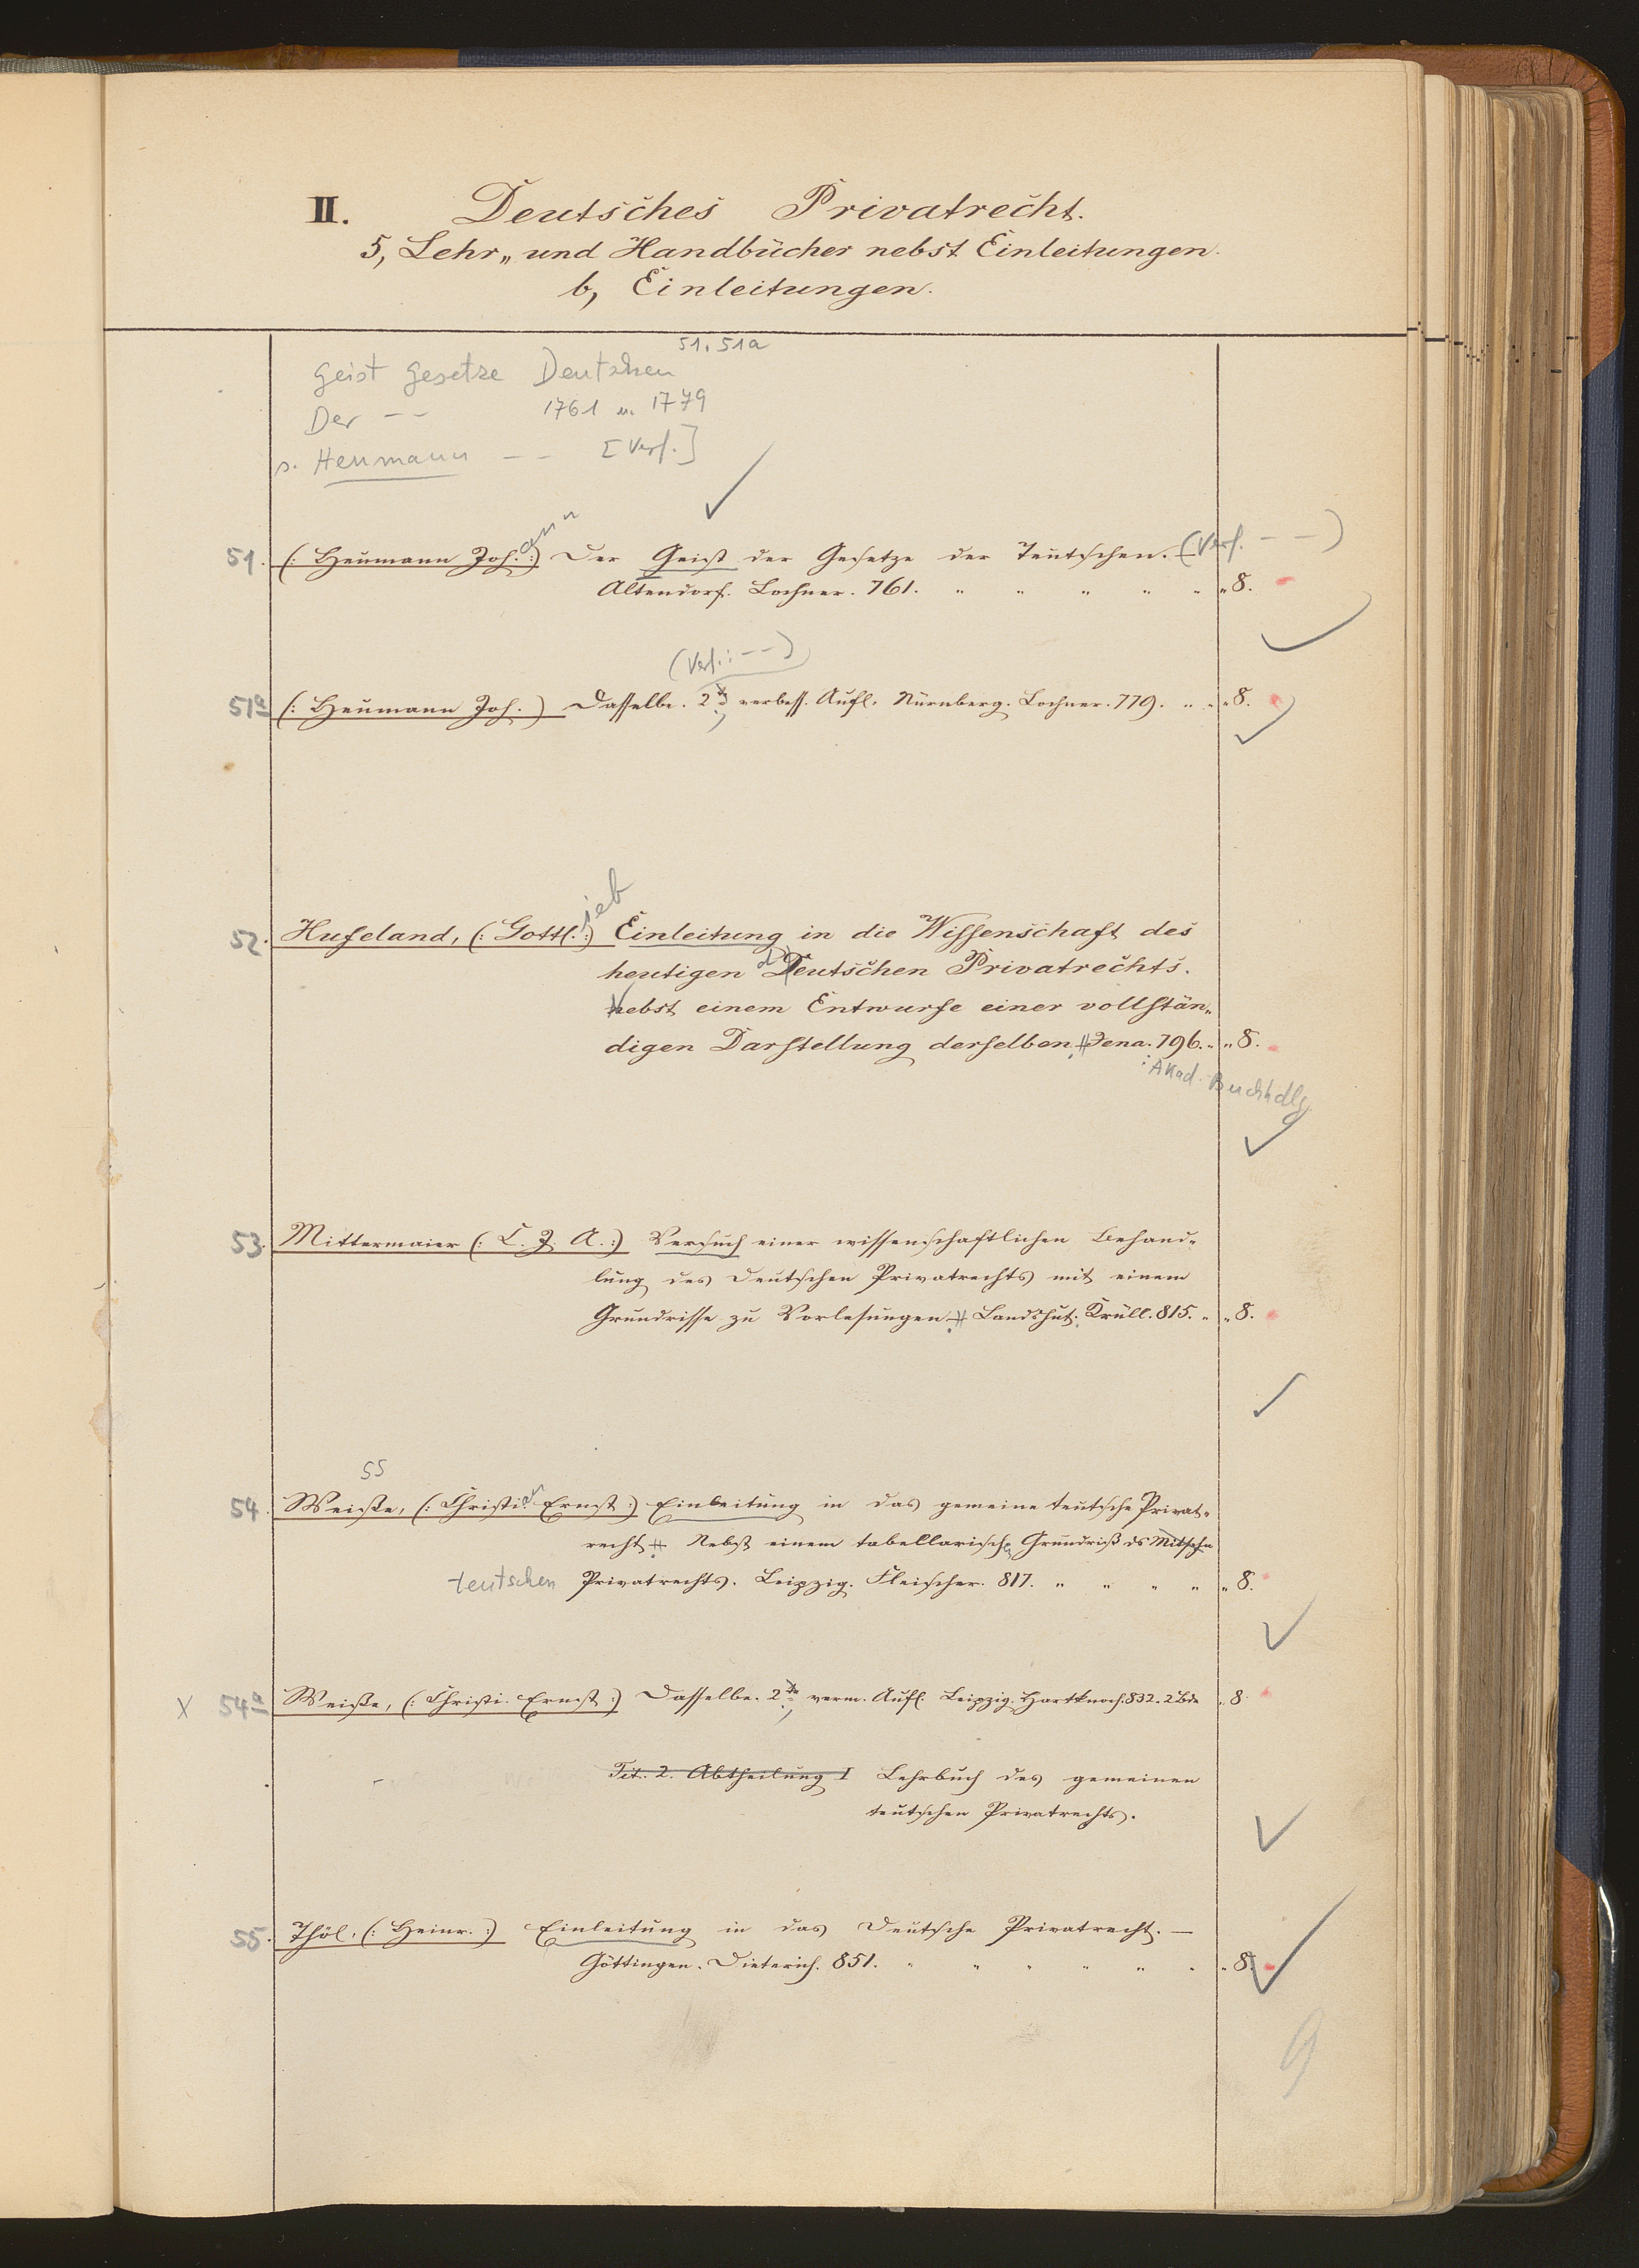 II. Deutsches Privatrecht.
5, Lehr„ und Handbücher nebst Einleitungen.
b, Einleitungen.
51. 51a
Geist Gesetze Deutschen
Der – – 1761 u. 1779
s. Heumann – – [Verf.]
51. (: Heumann Joh.ann :) Der Geist der Gesetze der Teutschen. (Verf. – – )
Altendorf. Lochner. 761. „ „ „ „ „ „ 8.
(Verf.: – – )
51a (: Heumann Joh. ) Dasselbe. 2te verbess. Aufl. Nürnberg. Lochner. 779. „ „ „ 8.
52. Hufeland, (: Gottl.ieb :) Einleitung in die Wissenschaft des
heutigen Deutschen Privatrechts.
Nebst einem Entwurfe einer vollstän„
digen Darstellung derselben. Jena. 796. „ „ 8.
: Akad. Buchhdlg
53. Mittermaier (: C. J. A. :) Versuch einer wissenschaftlichen Behand„
lung des Deutschen Privatrechts mit einem
Grundrisse zu Vorlesungen. Landshut. Krüll. 815. „ „ 8.
ss
54. Weiße, (: Christi.an Ernst :) Einleitung in das gemeine teutsche Privat„
recht. Nebst einem tabellarisch Grundriß ds
teutschen Privatrechts. Leipzig. Fleischer. 817. „ „ „ „ „ 8.
X 54a Weiße, (: Christi. Ernst :) Dasselbe. 2te verm. Aufl. Leipzig. Hartknoch. 832. 2 Bde „ 8.
Tit. 2. Abtheilung I Lehrbuch des gemeinen
teutschen Privatrechts.
55. Thöl, (: Heinr. :) Einleitung in das Deutsche Privatrecht. —
Göttingen. Dieterich. 851. „ „ „ „ „ „ „ 8.
9